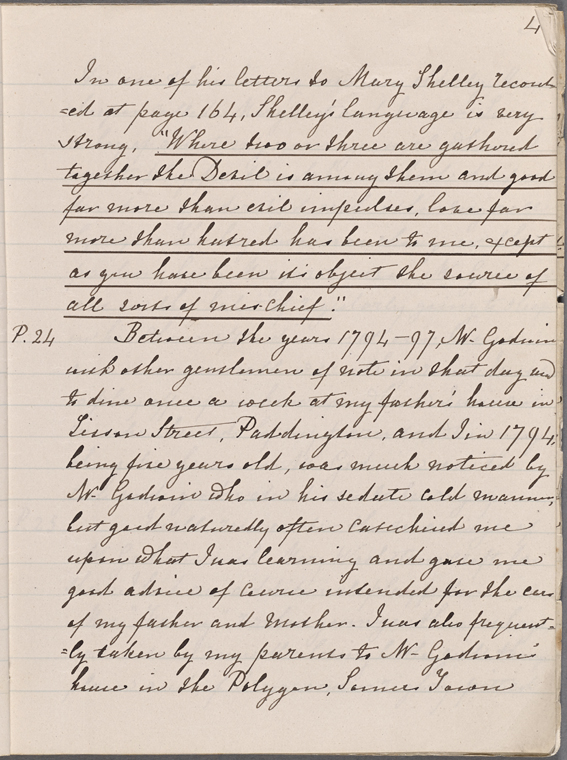 4
In one of his letters to Mary Shelley record
=ed at page 164, Shelley's language is very
strong, "Where two or three are gathered
together the Devil is among them and good
far more than evil impulses, love far
more than hatred has been to me, except
as you have been its object the source of
all sorts of mischief."
P. 24 Between the years 1794-97, Mr Godwin
with other gentlemen of note in that day used
to dine once a week at my father's house in
Lisson Street, Paddington, and I in 1794,
being five years old, was much noticed by
Mr Godwin who in his sedate cold manner,
but good naturedly often catechised me
upon what I was learning and gave me
good advice of course intended for the ears
of my father and mother. I was also frequent=
=ly taken by my parents to Mr Godwin's
house in the Polygon, Somers Town